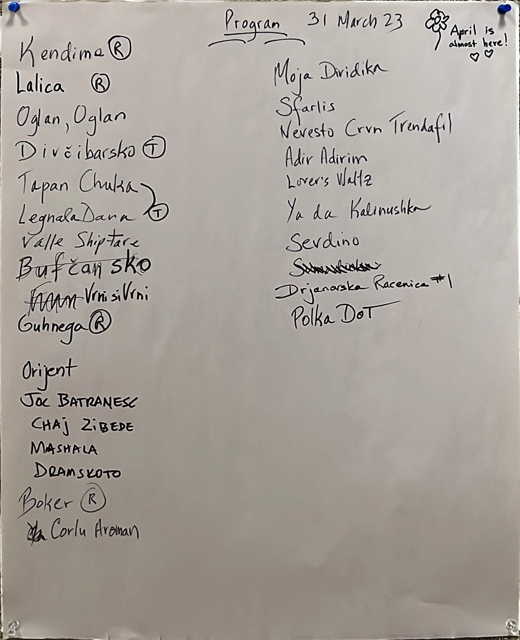 Program 31 March 23
April is
almost here!
Kendime R
Lalica R
Oglan, Oglan
Divčibarsko T
Tapan Chuka
Legnala Dana T
Valle Shiptare
Bufčansko
Vrni si Vrni
Guhnega R
Orijent
JOC BATRANESC
CHAJ ZIBEDE
MASHALA
DRAMSKOTO
Boker R
Corlu Aroman
Moja Diridika
Sfarlis
Nevesto Crvn Trendafil
Adir Adirim
Lover's Waltz
Ya da Kalinushka
Sevdino
Drjanovska Racenica #1
Polka Dot